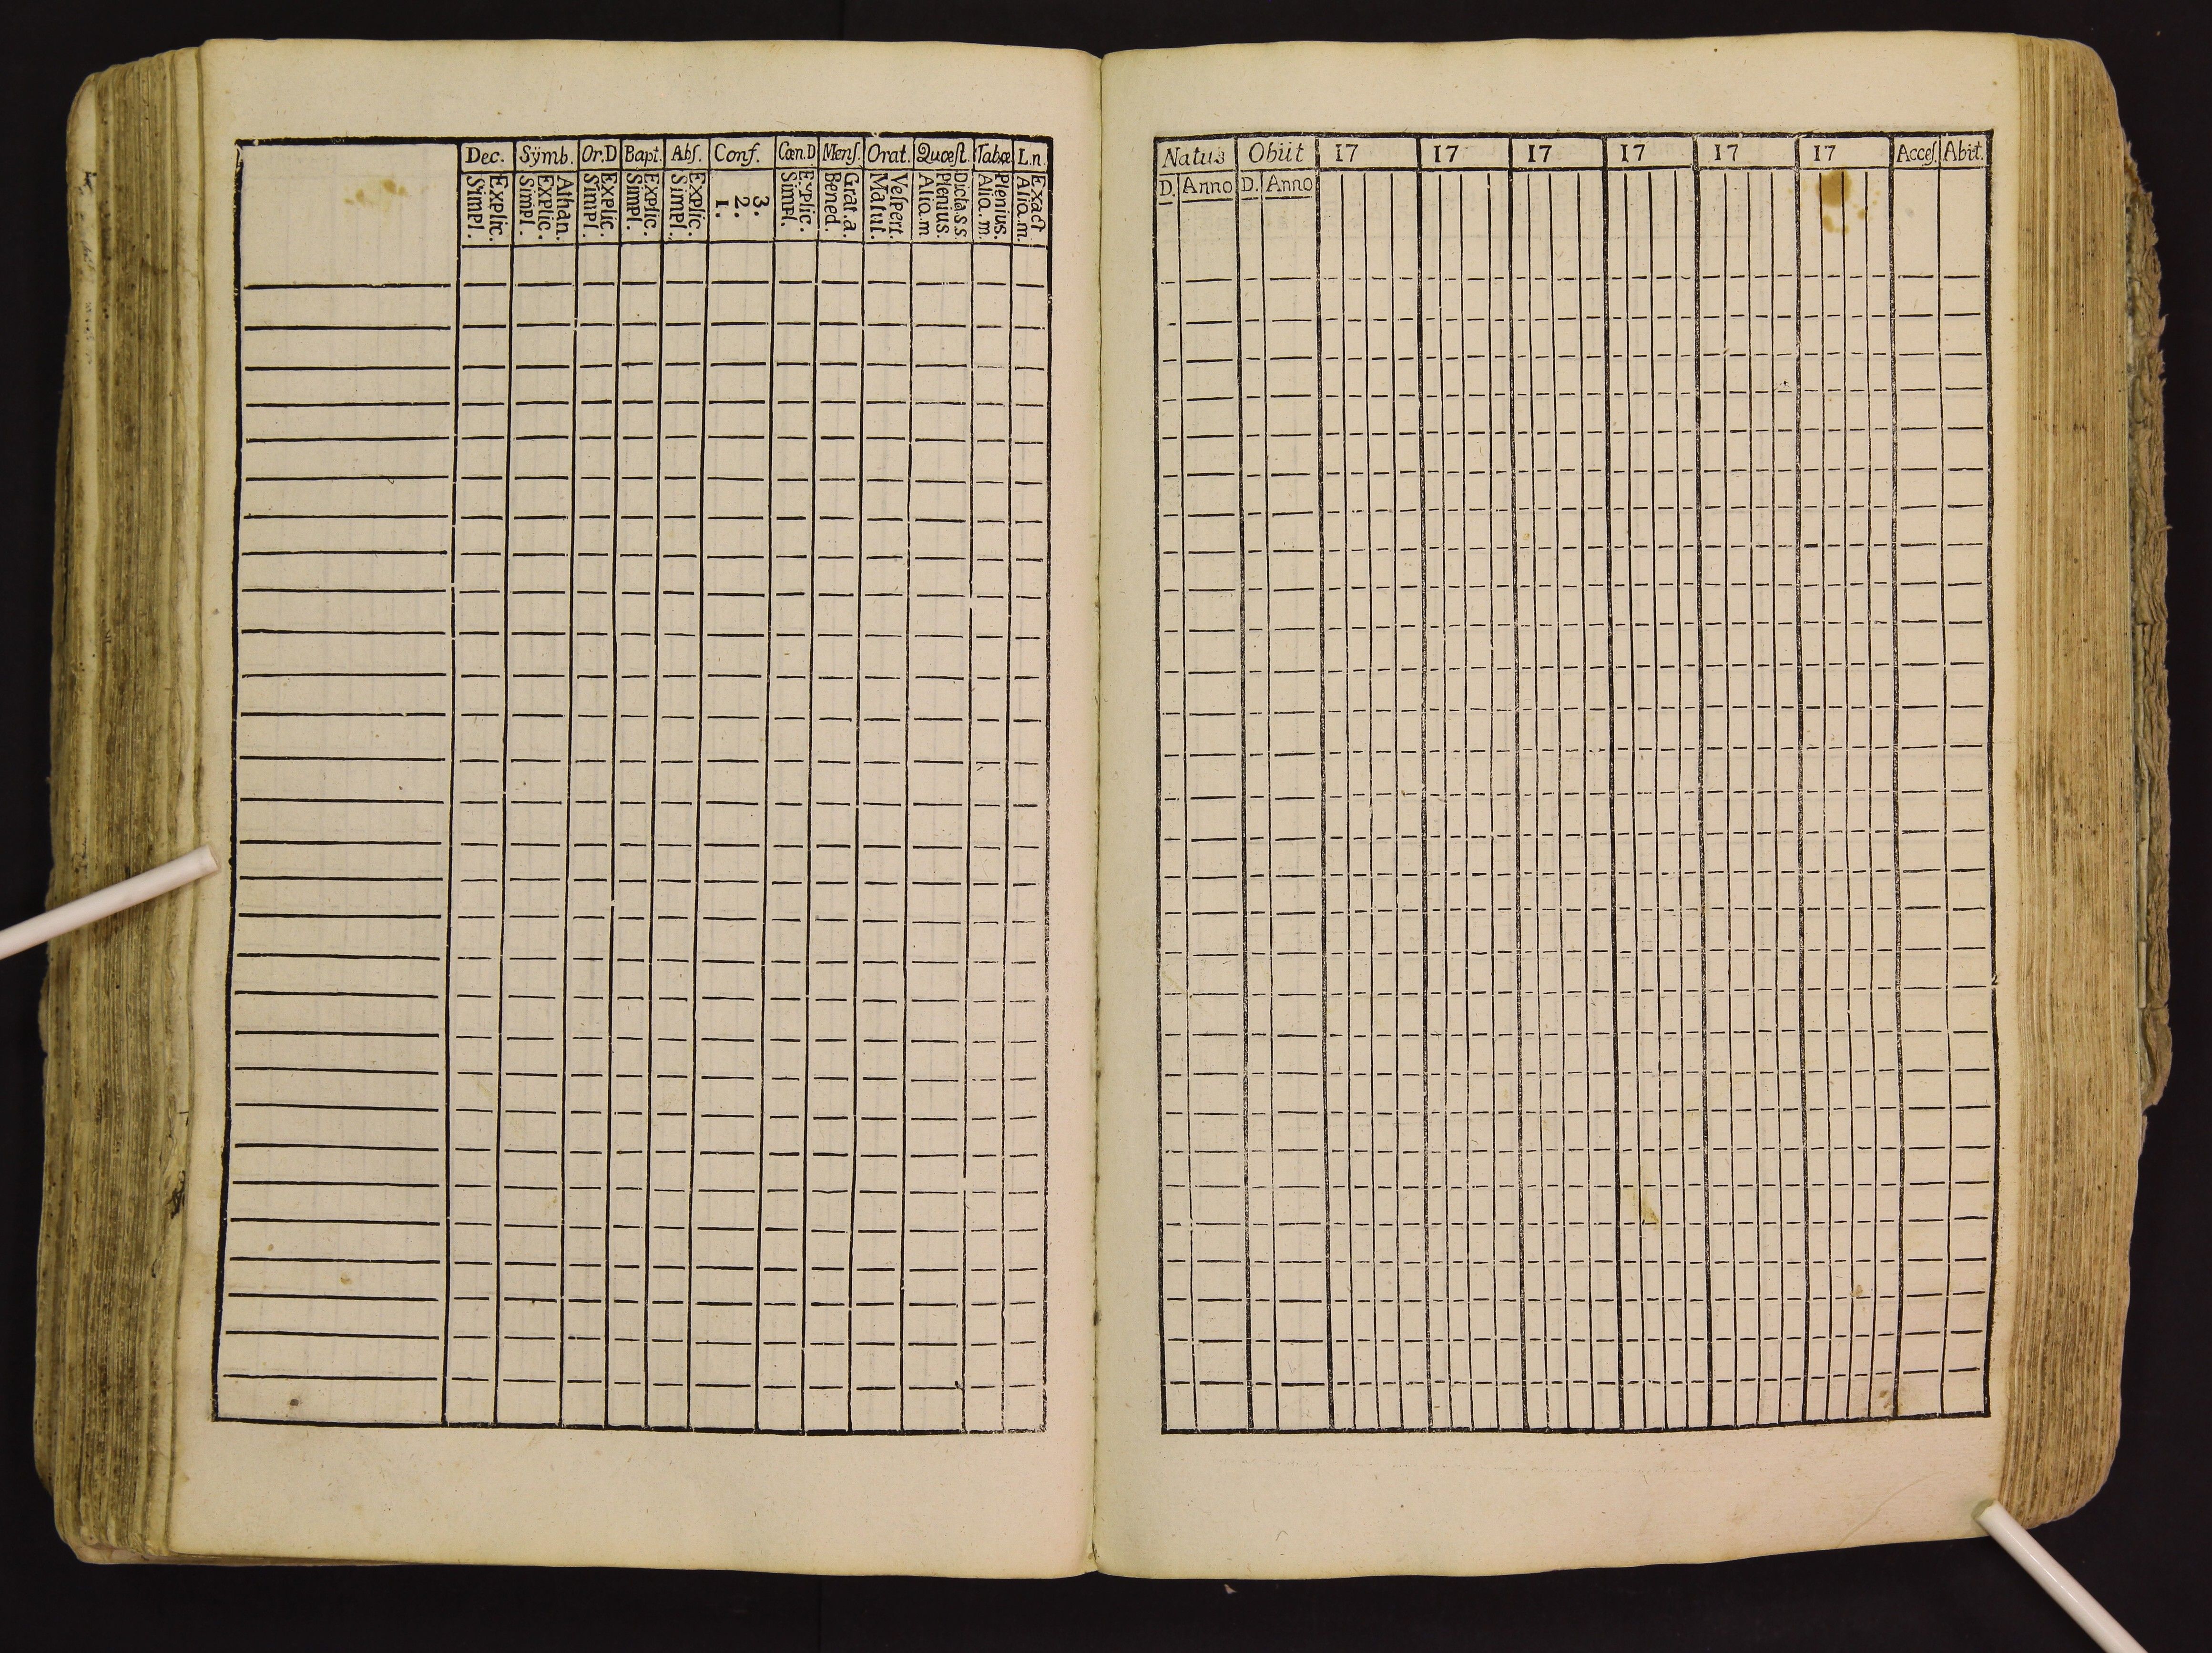 Dec. Sÿmb. Or.D Bapt. Abſ. Conf. Cœn.D Menſ. Orat. Quœſt. Tabœ L.n.
Simpl. Explic. Simpl. Explic. Athan. Simpl. Explic. Simpl. Explic. Simpl. Explic. 1. 2. 3. Simpl. Explic. Bened. Grat.a. Matut. Veſpert. Aliq.m Plenius. Dicta S S. Aliq.m. Plenius. Aliq.m. Exact
Natus Obiit 17 17 17 17 17 17 Acceſ. Abit.
D. Anno D. Anno